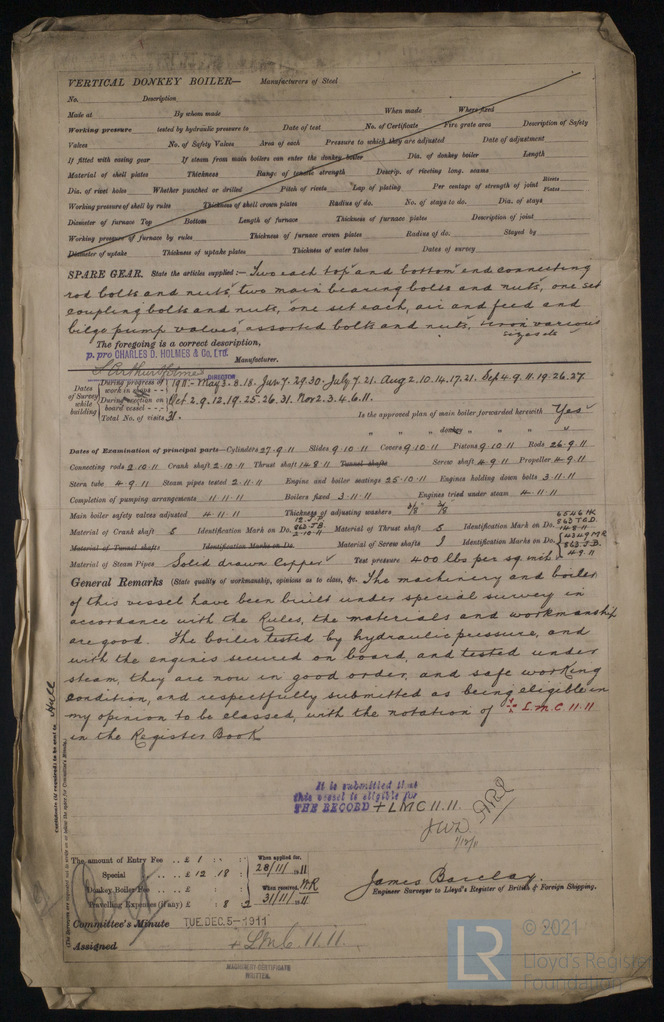 VERTICAL DONKEY BOILER— Manufacturers of Steel
No. Description
Made at By whom made When made Where fixed
Working pressure tested by hydraulic pressure to Date of test No. of Certificate Fire grate area Description of Safety
Valves No. of Safety Valves Area of each Pressure to which they are adjusted Date of adjustment
If fitted with easing gear If steam from main boilers can enter the donkey boiler Dia. of donkey boiler Length
Material of shell plates Thickness Range of tensile strength Descrip. of riveting long. seams
Dia. of rivet holes Whether punched or drilled Pitch of rivets Lap of plating Per centage of strength of joint Rivets Plates
Working pressure of shell by rules Thickness of shell crown plates Radius of do. No. of stays to do. Dia. of stays
Diameter of furnace Top Bottom Length of furnace Thickness of furnace plates Description of joint
Working pressure of furnace by rules Thickness of furnace crown plates Radius of do. Stayed by
Diameter of uptake Thickness of uptake plates Thickness of water tubes Dates of survey
SPARE GEAR. State the articles supplied:— Two each top and bottom end connecting
rod bolts and nuts, two main bearing bolts and nuts, one set
coupling bolts and nuts, one set each, air and feed and
bilge pump valves, assorted bolts and nuts, iron various
sizes etc
The foregoing is a correct description,
p. pro CHARLES D. HOLMES & Co. Ltd. Manufacturer.
DIRECTOR
Dates of Survey while building
During progress of work in shops - - 1911:- May 3. 8. 18. Jun 7. 29. 30. July 7. 21. Aug 2. 10. 14. 17. 21. Sep 4. 9. 11. 19. 26. 27.
During erection on board vessel - - - Oct 2. 9. 12. 19. 25. 26. 31. Nov 2. 3. 4. 6. 11.
Total No. of visits 31. Is the approved plan of main boiler forwarded herewith Yes
" " " donkey " " "
Dates of Examination of principal parts—Cylinders 27.9.11 Slides 9.10.11 Covers 9.10.11 Pistons 9.10.11 Rods 26.9.11
Connecting rods 2.10.11 Crank shaft 2.10.11 Thrust shaft 14.8.11 Tunnel shafts Screw shaft 4.9.11 Propeller 4.9.11
Stern tube 4.9.11 Steam pipes tested 2.11.11 Engine and boiler seatings 25.10.11 Engines holding down bolts 3.11.11
Completion of pumping arrangements 11.11.11 Boilers fixed 3.11.11 Engines tried under steam 4.11.11
Main boiler safety valves adjusted 4.11.11 Thickness of adjusting washers
Material of Crank shaft S Identification Mark on Do. 863 J.B. 2.10.11 Material of Thrust shaft S Identification Mark on Do. 14.8.11
Material of Tunnel shafts Identification Marks on Do. Material of Screw shafts Identification Marks on Do. 863. J.B. 4.9.11
Material of Steam Pipes Solid drawn Copper Test pressure 400 lbs per sq. inch
General Remarks (State quality of workmanship, opinions as to class, &c. The machinery and boiler
of this vessel have been built under special survey in
accordance with the Rules, the materials and workmanship
are good. The boiler tested by hydraulic pressure, and
with the engines secured on board, and tested under
steam, they are now in good order, and safe working
condition, and respectfully submitted as being eligible in
my opinion to be classed, with the notation of + L.M.C. 11.11
in the Register Book
It is submitted that
this vessel is eligible for
THE RECORD + LMC 11.11
Certificate (if required) to be sent to Hull
(The Surveyors are requested not to write on or below the space for Committee's Minute.)
The amount of Entry Fee .. £ 1 : : When applied for,
Special .. £ 12 . 18 : 28/11/1911
Donkey Boiler Fee .. £ : : When received,
Travelling Expenses (if any) £ : 8 . 2 31/11/1911
James Barclay.
Engineer Surveyor to Lloyd's Register of British & Foreign Shipping.
Committee's Minute TUE. DEC. 5-1911
Assigned + L.M.C. 11.11.
MACHINERY CERTIFICATE
WRITTEN.
LR © 2021
Lloyd's Register
Foundation